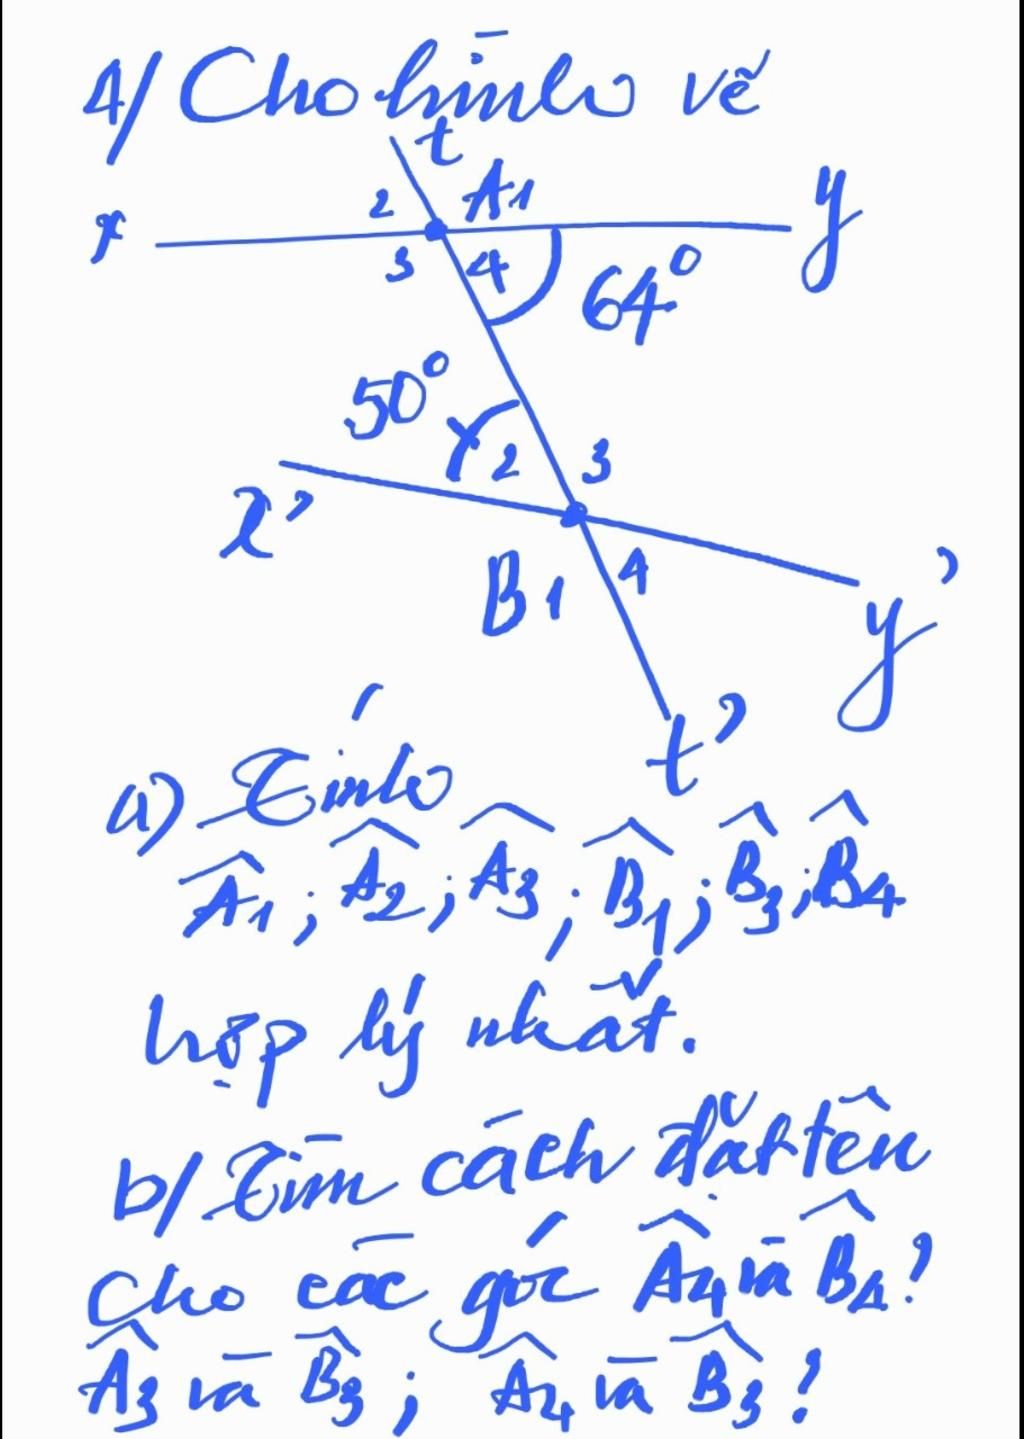 4/ Cho hình vẽ
t
x 2 A1 y
3 4 64°
50°
2 3
x'
B1 4
y'
t'
a) Tính
Â1; Â2; Â3; B̂1; B̂3; B̂4
hợp lý nhất.
b/ Tìm cách đặt tên
cho các góc Â4 và B̂4?
Â3 và B̂3; Â4 và B̂3?